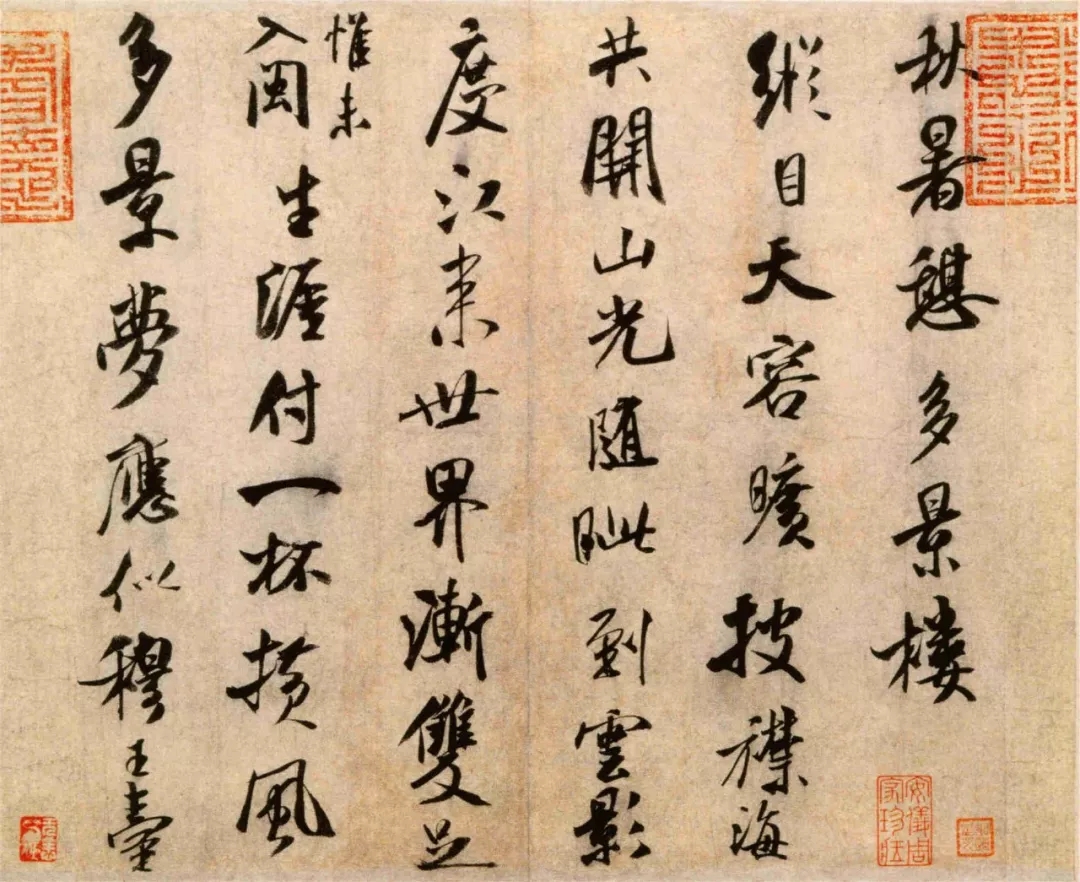 秋暑憩多景樓
縱目天容曠披襟海
共開山光隨眦到雲影
度江来世界漸雙足
惟未
入閩生涯付一杯横風
多景夢應似穆王臺
安儀周家珍藏